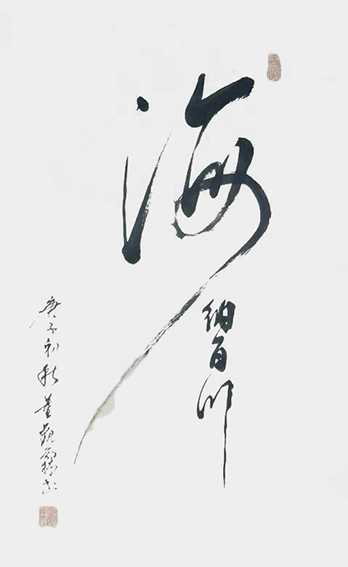 海
納百川
庚子初秋董